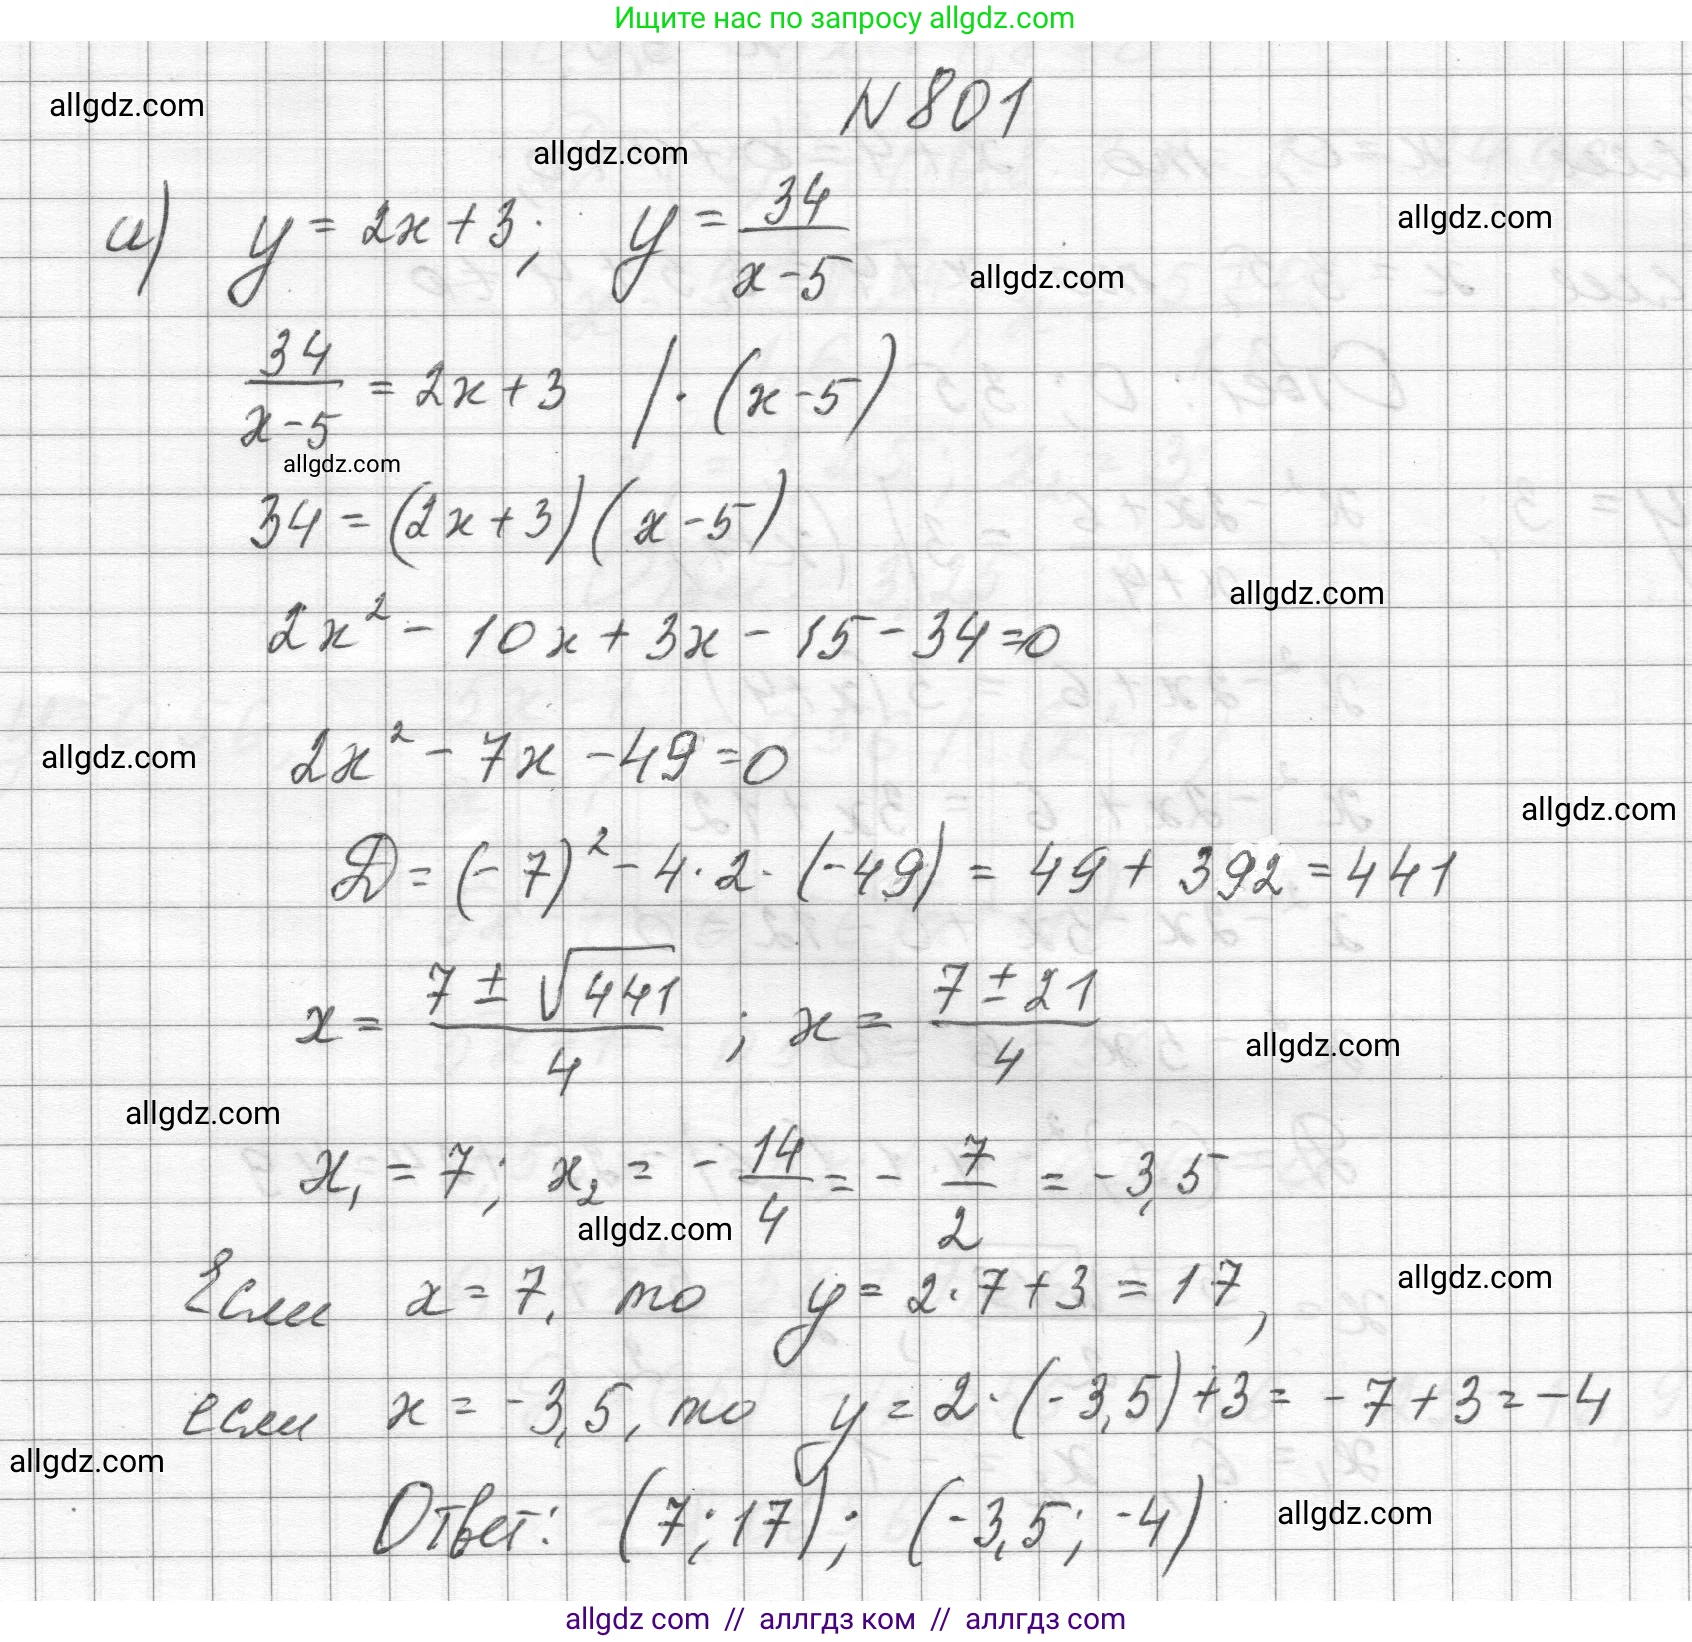 Ищите нас по запросу allgdz.com
N 801
allgdz.com
allgdz.com
а) y = 2x + 3; y = 34/(x-5)
allgdz.com
allgdz.com
34/(x-5) = 2x + 3 | · (x-5)
allgdz.com
34 = (2x+3)(x-5)
allgdz.com
2x² - 10x + 3x - 15 - 34 = 0
2x² - 7x - 49 = 0
allgdz.com
allgdz.com
D = (-7)² - 4 · 2 · (-49) = 49 + 392 = 441
x = (7 ± √441)/4 ; x = (7 ± 21)/4
allgdz.com
allgdz.com
x₁ = 7; x₂ = - 14/4 = - 7/2 = -3,5
allgdz.com
Если x = 7, то y = 2 · 7 + 3 = 17,
allgdz.com
если x = -3,5, то y = 2 · (-3,5) + 3 = -7 + 3 = -4
allgdz.com
Ответ: (7; 17); (-3,5; -4)
allgdz.com
allgdz com // аллгдз ком // аллгдз com